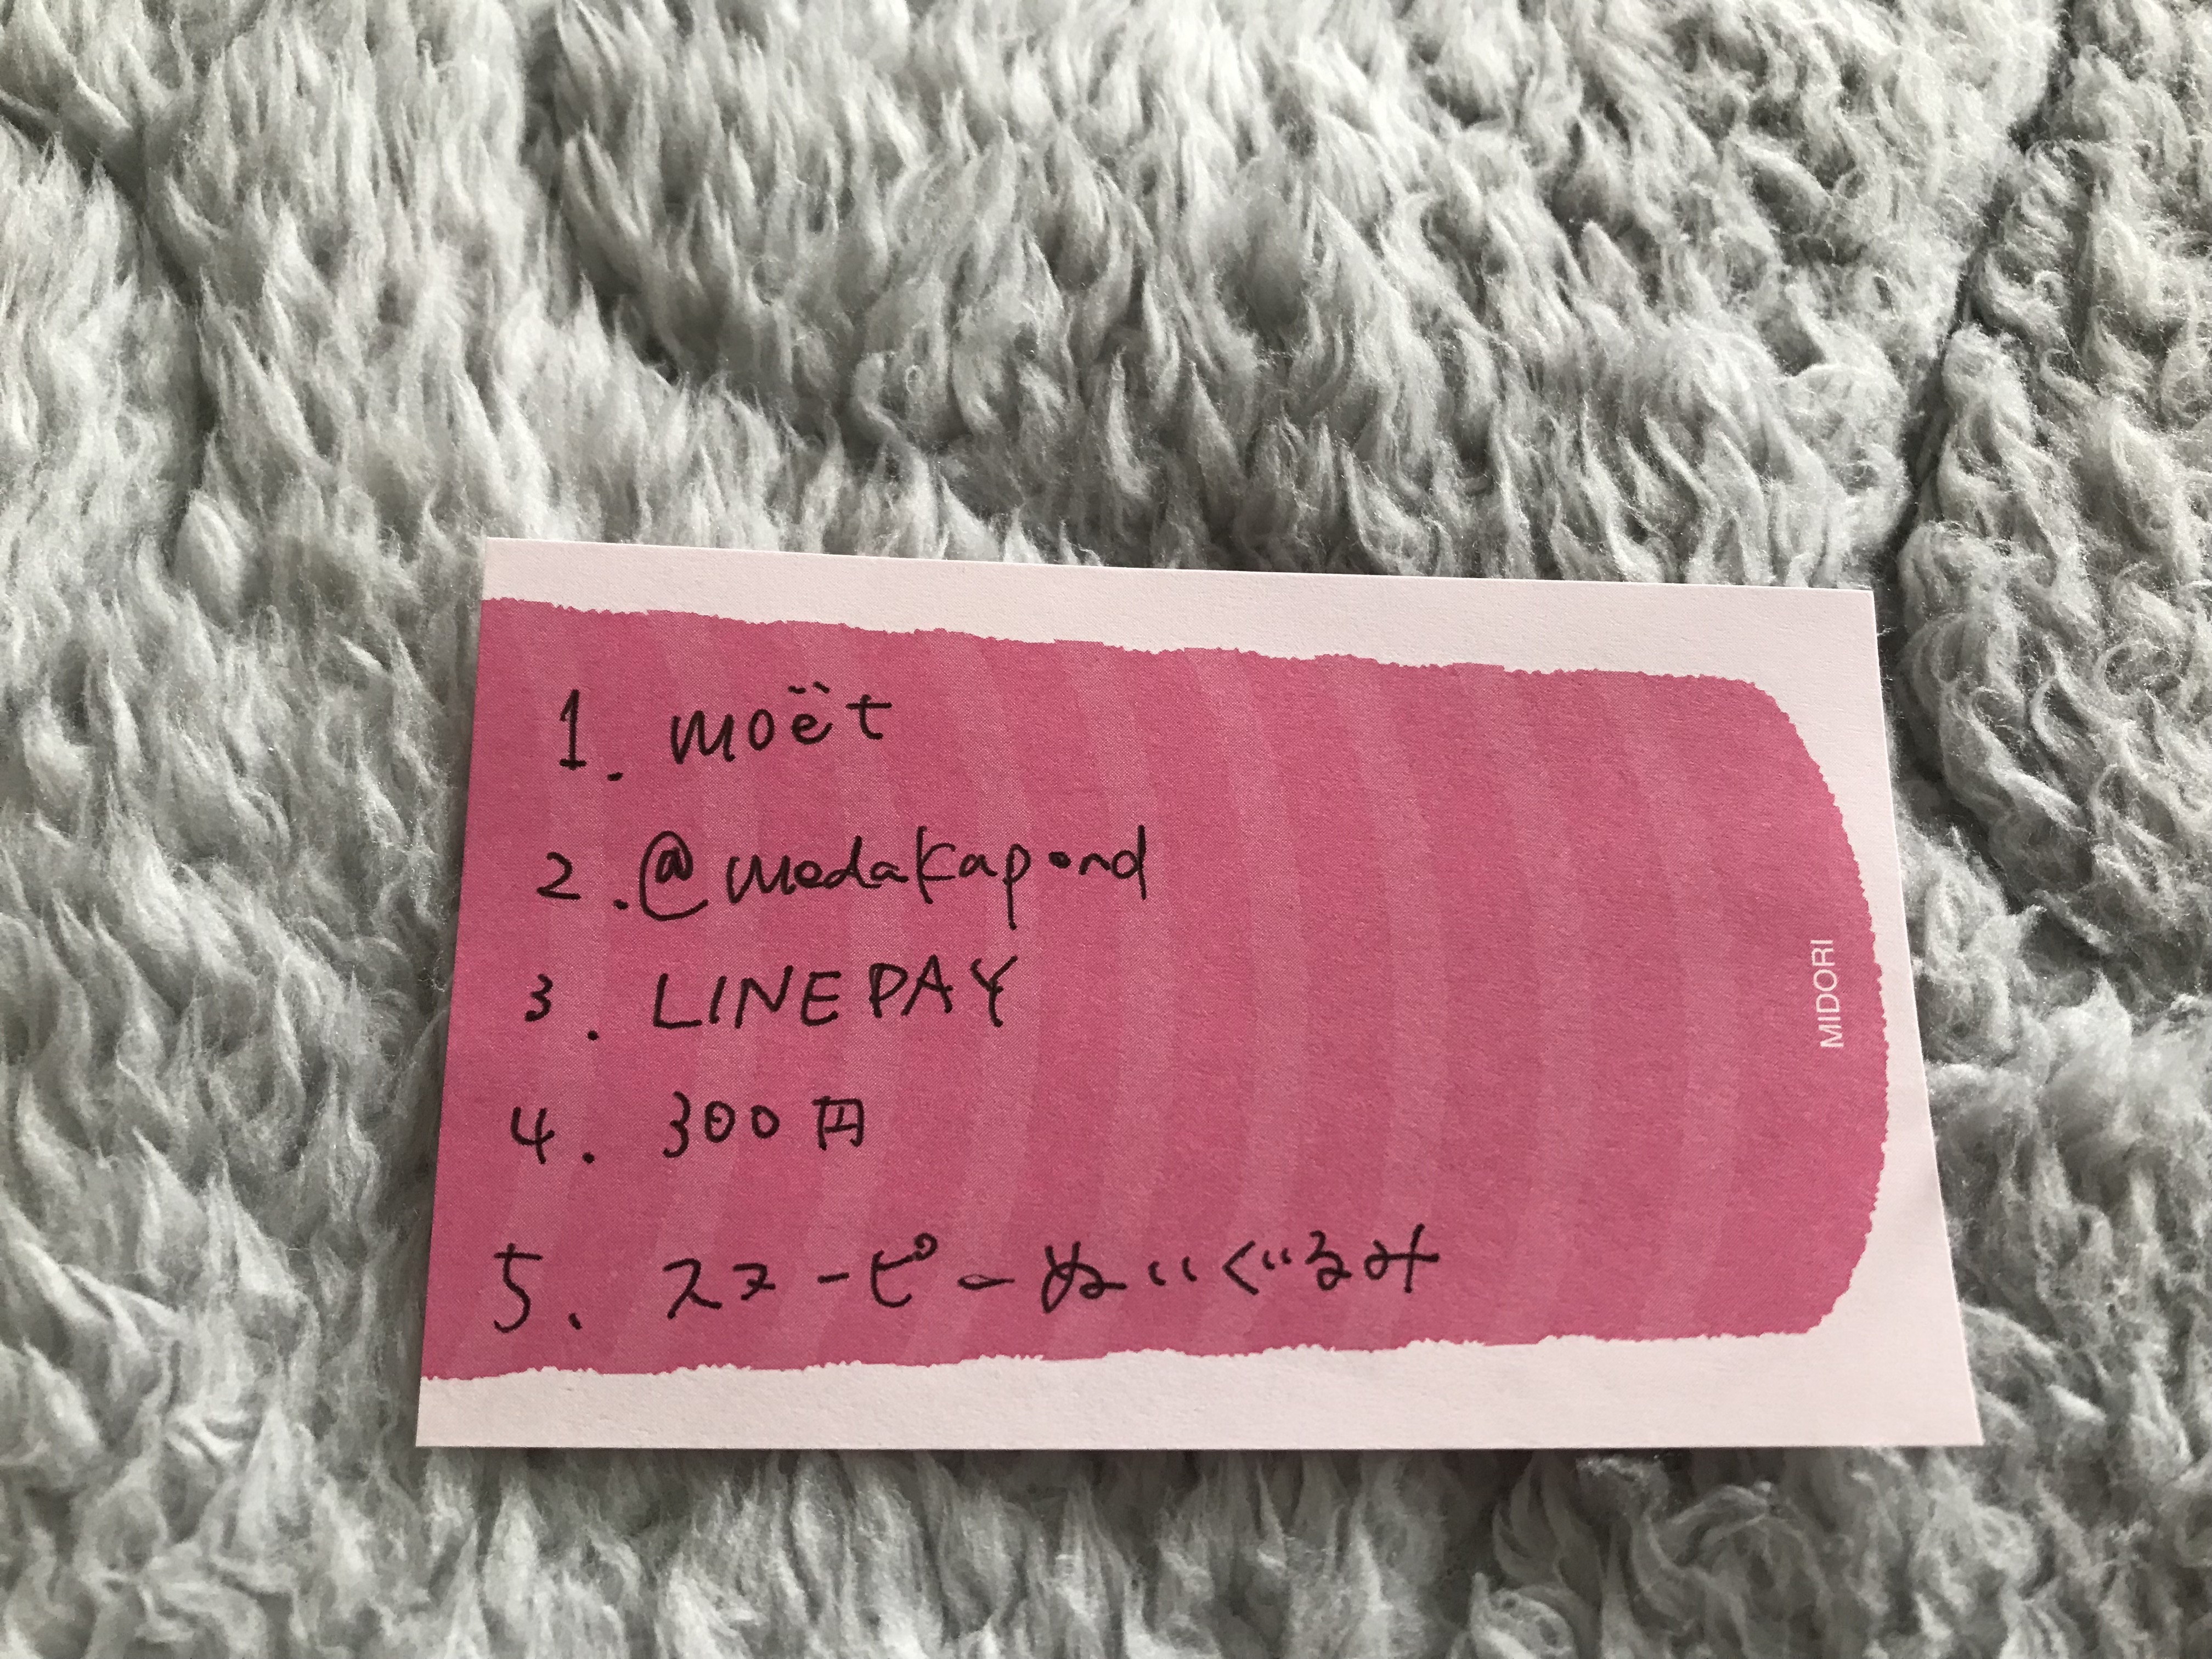 1. moët
2. @medakapond
3. LINE PAY
4. 300円
5. スヌーピーぬいぐるみ
MIDORI